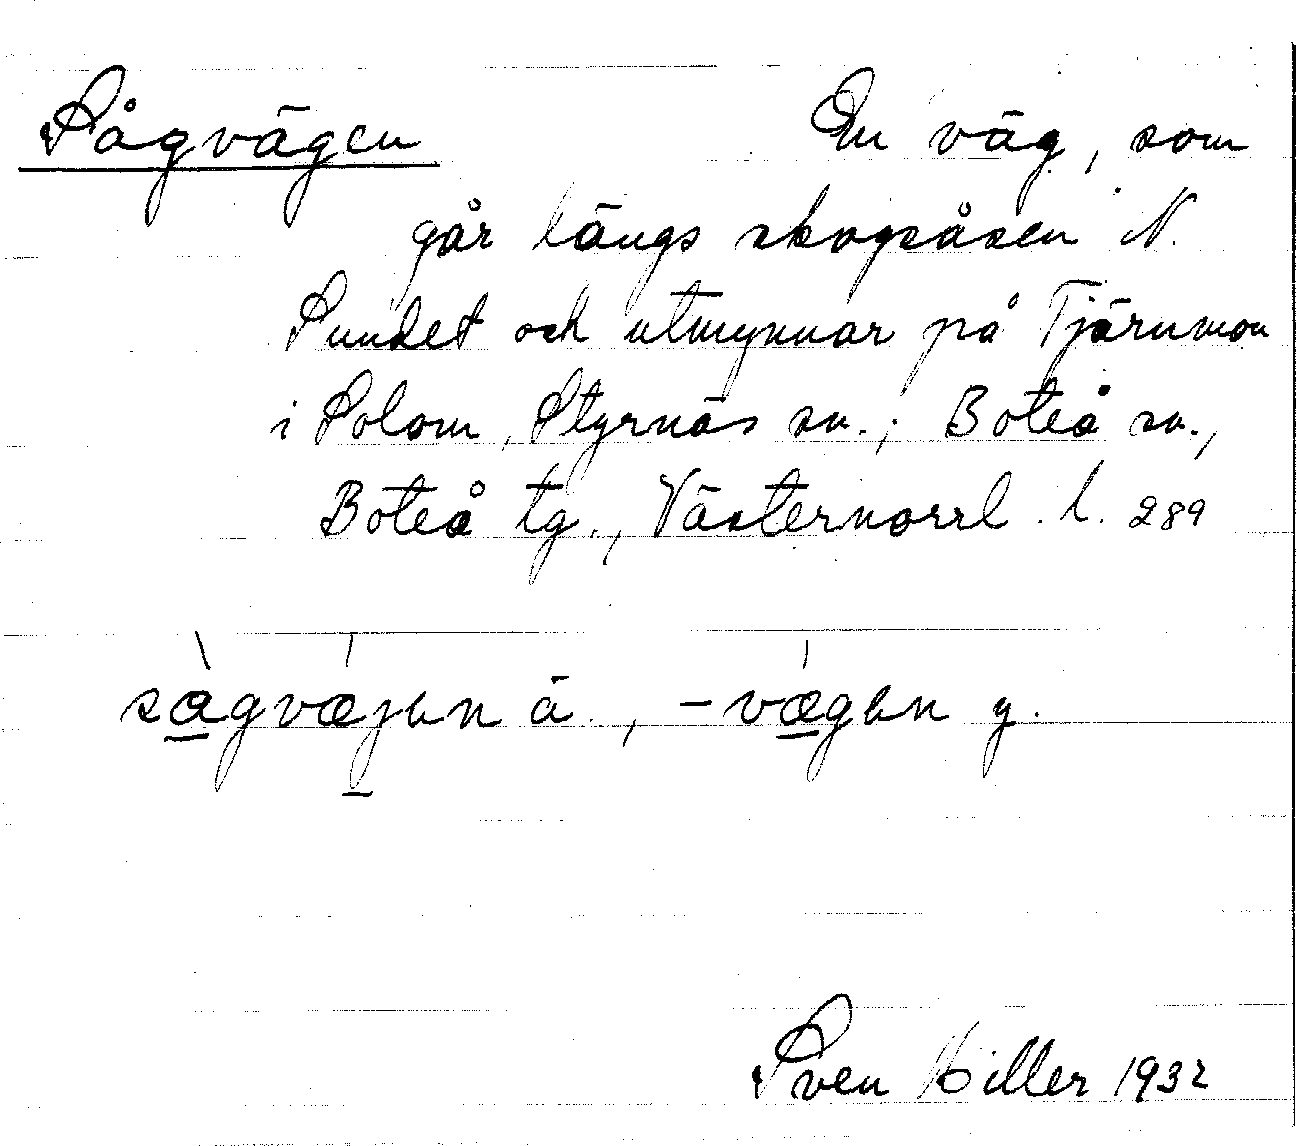 Sågvägen En väg, som
går längs skogsåsen N.
Sundet och utmynnar på Tjärnmon
i Solom, Styrnäs sn.; Boteå sn.,
Boteå tg., Västernorrl. l. 289
sågvæjen ä., -vægen y.
Sven Hiller 1932